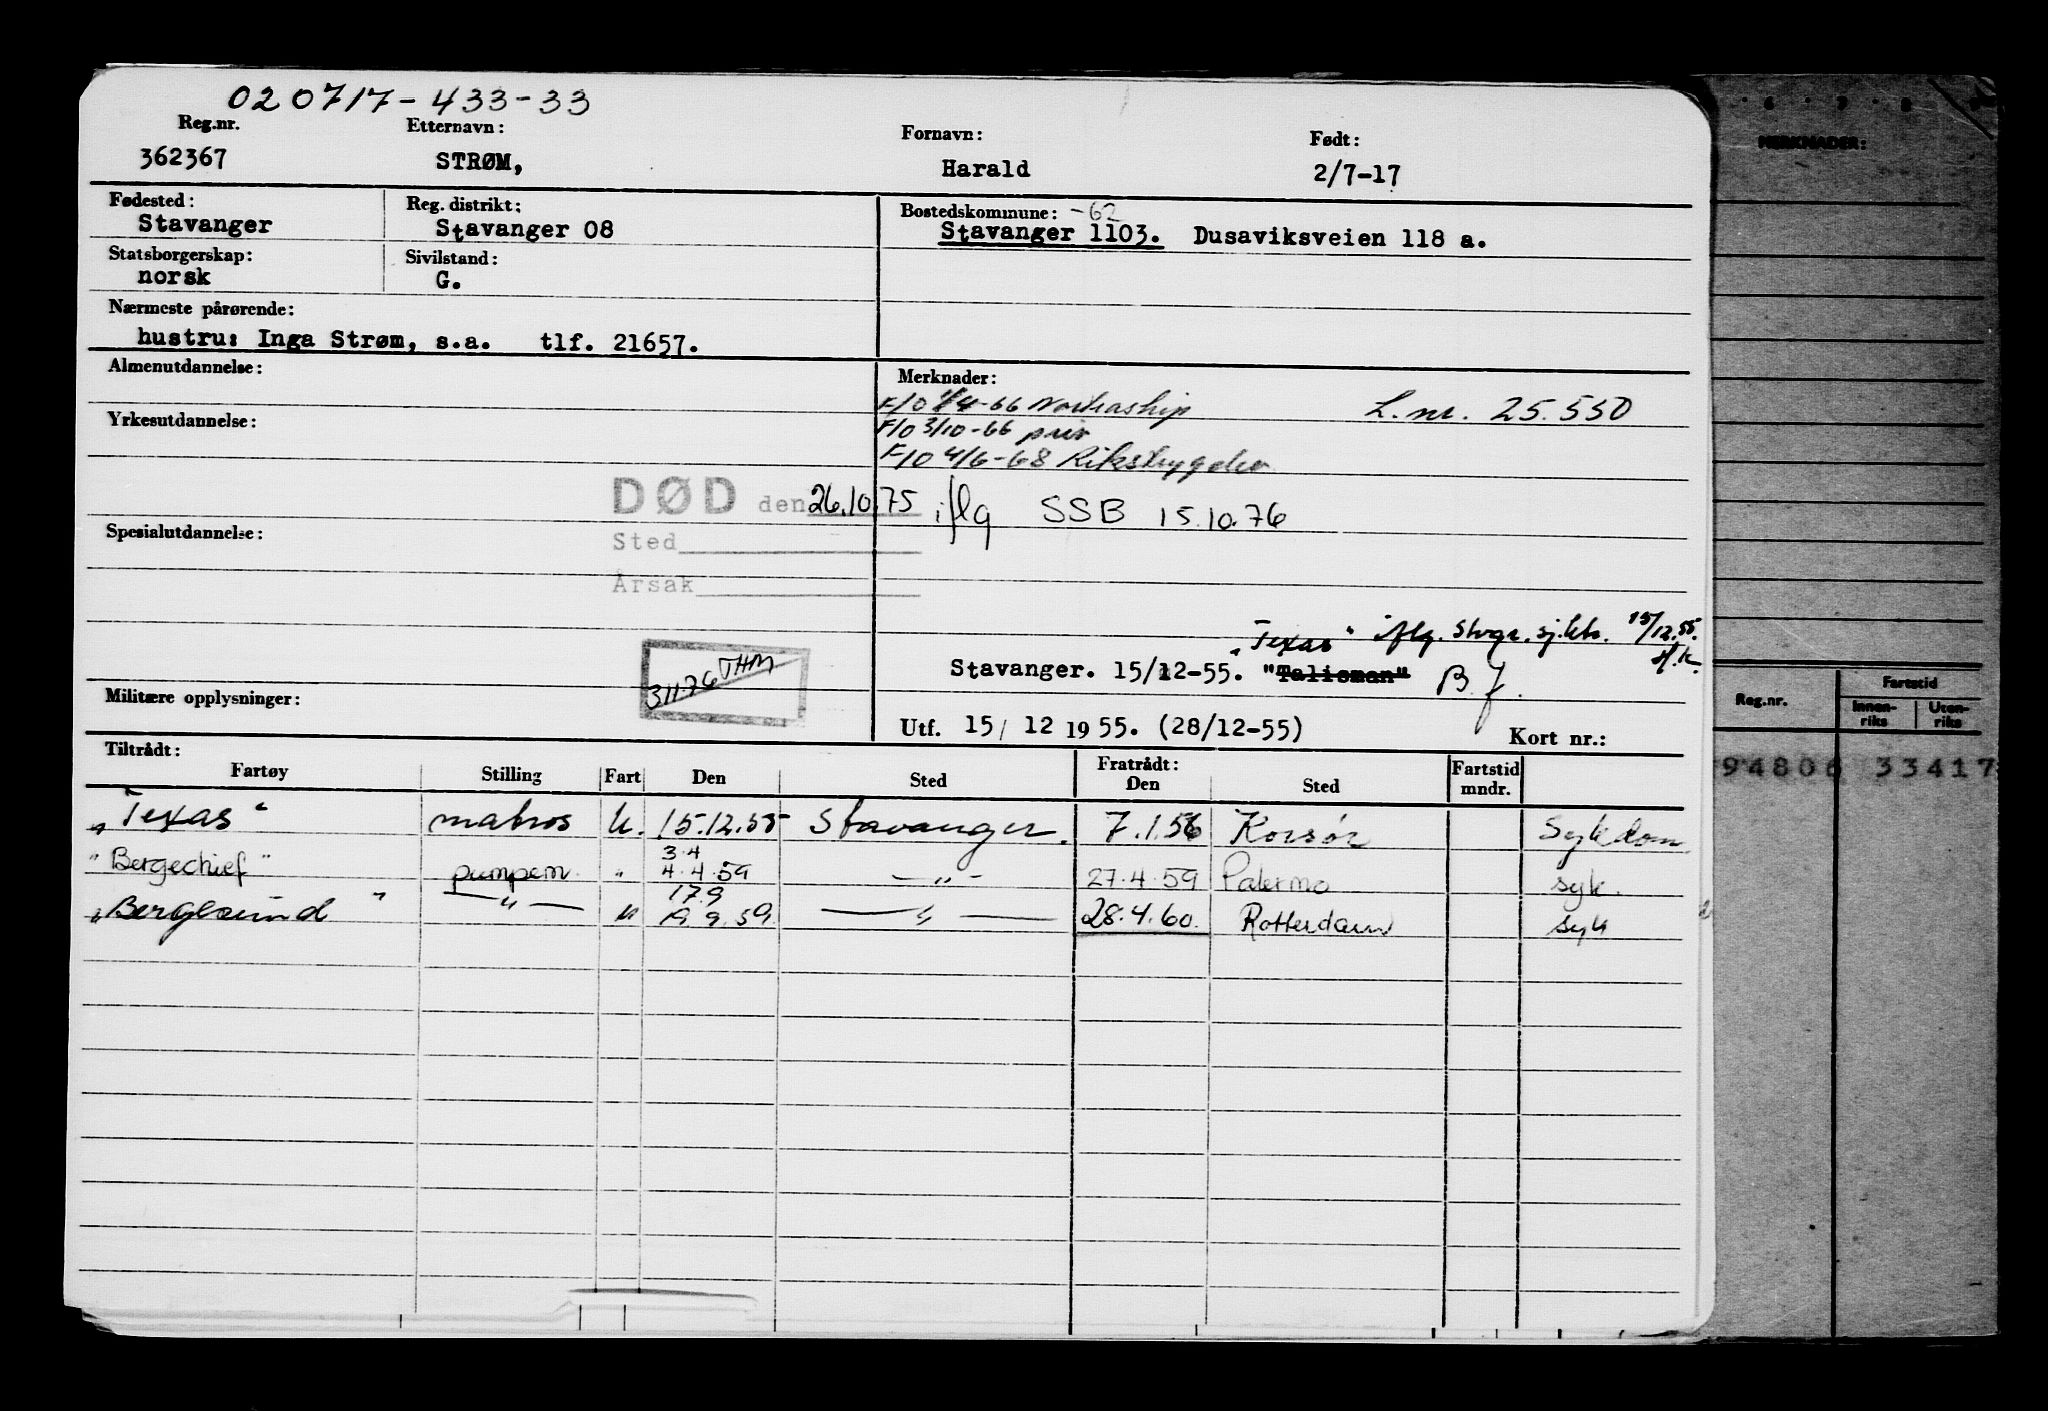 020717-433-33
Reg.nr. Etternavn: Fornavn: Født:
362367 STRØM, Harald 2/7-17
Fødested: Reg. distrikt: Bostedskommune: -62
Stavanger Stavanger 08 Stavanger 1103. Dusaviksveien 118 a.
Statsborgerskap: Sivilstand:
norsk G.
Nærmeste pårørende:
hustru: Inga Strøm, s.a. tlf. 21657.
Almenutdannelse: Merknader:
F/O 1/4-66 Nortraship L.nr. 25.550
Yrkesutdannelse: F/O 3/10-66 priv
F/O 4/6-68 Rikstrygden
DØD den 26.10.75 iflg SSB 15.10.76
Spesialutdannelse: Sted
Årsak
"Texas" iflg. Stvgr. sj.ktr. 15/12.55.
Stavanger. 15/12-55. "Talisman" B.J. H.K.
31176 THM
Militære opplysninger:
Utf. 15/ 12 1955. (28/12-55) Kort nr.:
Tiltrådt: Fratrådt:
Fartøy Stilling Fart Den Sted Den Sted Fartstid mndr.
"Texas" matros U. 15.12.55 Stavanger. 7.1.56 Korsør Sykdom
3.4
"Bergechief" pumpem. " 4.4.59 — " — 27.4.59 Palermo syk.
17.9
"Bergesund" — " — " 19.9.59. — " — 28.4.60. Rotterdam syk
6 7 8
MERKNADER:
Reg.nr. Fartstid
Innenriks Utenriks
94806 33417